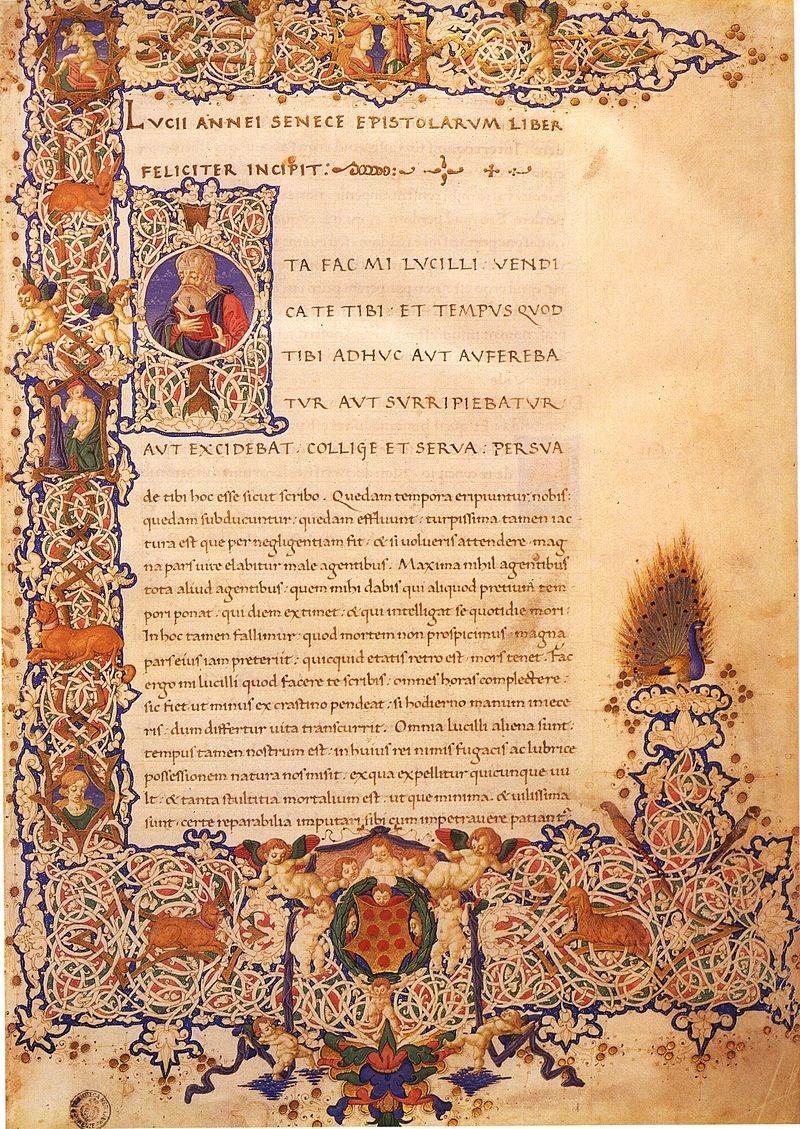 LVCII ANNEI SENECE EPISTOLARVM LIBER
FELICITER INCIPIT:
ITA FAC MI LVCILLI: VENDI
CA TE TIBI: ET TEMPVS QVOD
TIBI ADHVC AVT AVFEREBA
TVR AVT SVRRIPIEBATVR:
AVT EXCIDEBAT: COLLIGE ET SERVA: PERSVA
de tibi hoc esse sicut scribo. Quedam tempora eripiuntur nobis:
quedam subducuntur: quedam effluunt: turpissima tamen iac
tura est que per negligentiam fit: & si volueris attendere mag
na pars vite elabitur male agentibus. Maxima nihil agentibus
tota aliud agentibus: quem mihi dabis qui aliquod pretium tem
pori ponat: qui diem extimet: & qui intelligat se quotidie mori:
In hoc tamen fallimur: quod mortem non prospicimus: magna
pars eius iam preteriit: quicquid etatis retro est: mors tenet. Fac
ergo mi lucilli quod facere te scribis: omnes horas complectere:
sic fiet ut minus ex crastino pendeat: si hodierno manum iniece
ris: dum differtur vita transcurrit. Omnia lucilli aliena sunt:
tempus tamen nostrum est: in huius rei nimis fugacis ac lubrice
possessionem natura nos misit: ex qua expellitur quicunque vu
lt: & tanta stultitia mortalium est: ut que minima & vilissima
sunt: certe reparabilia imputari sibi cum impetravere patiant᷑